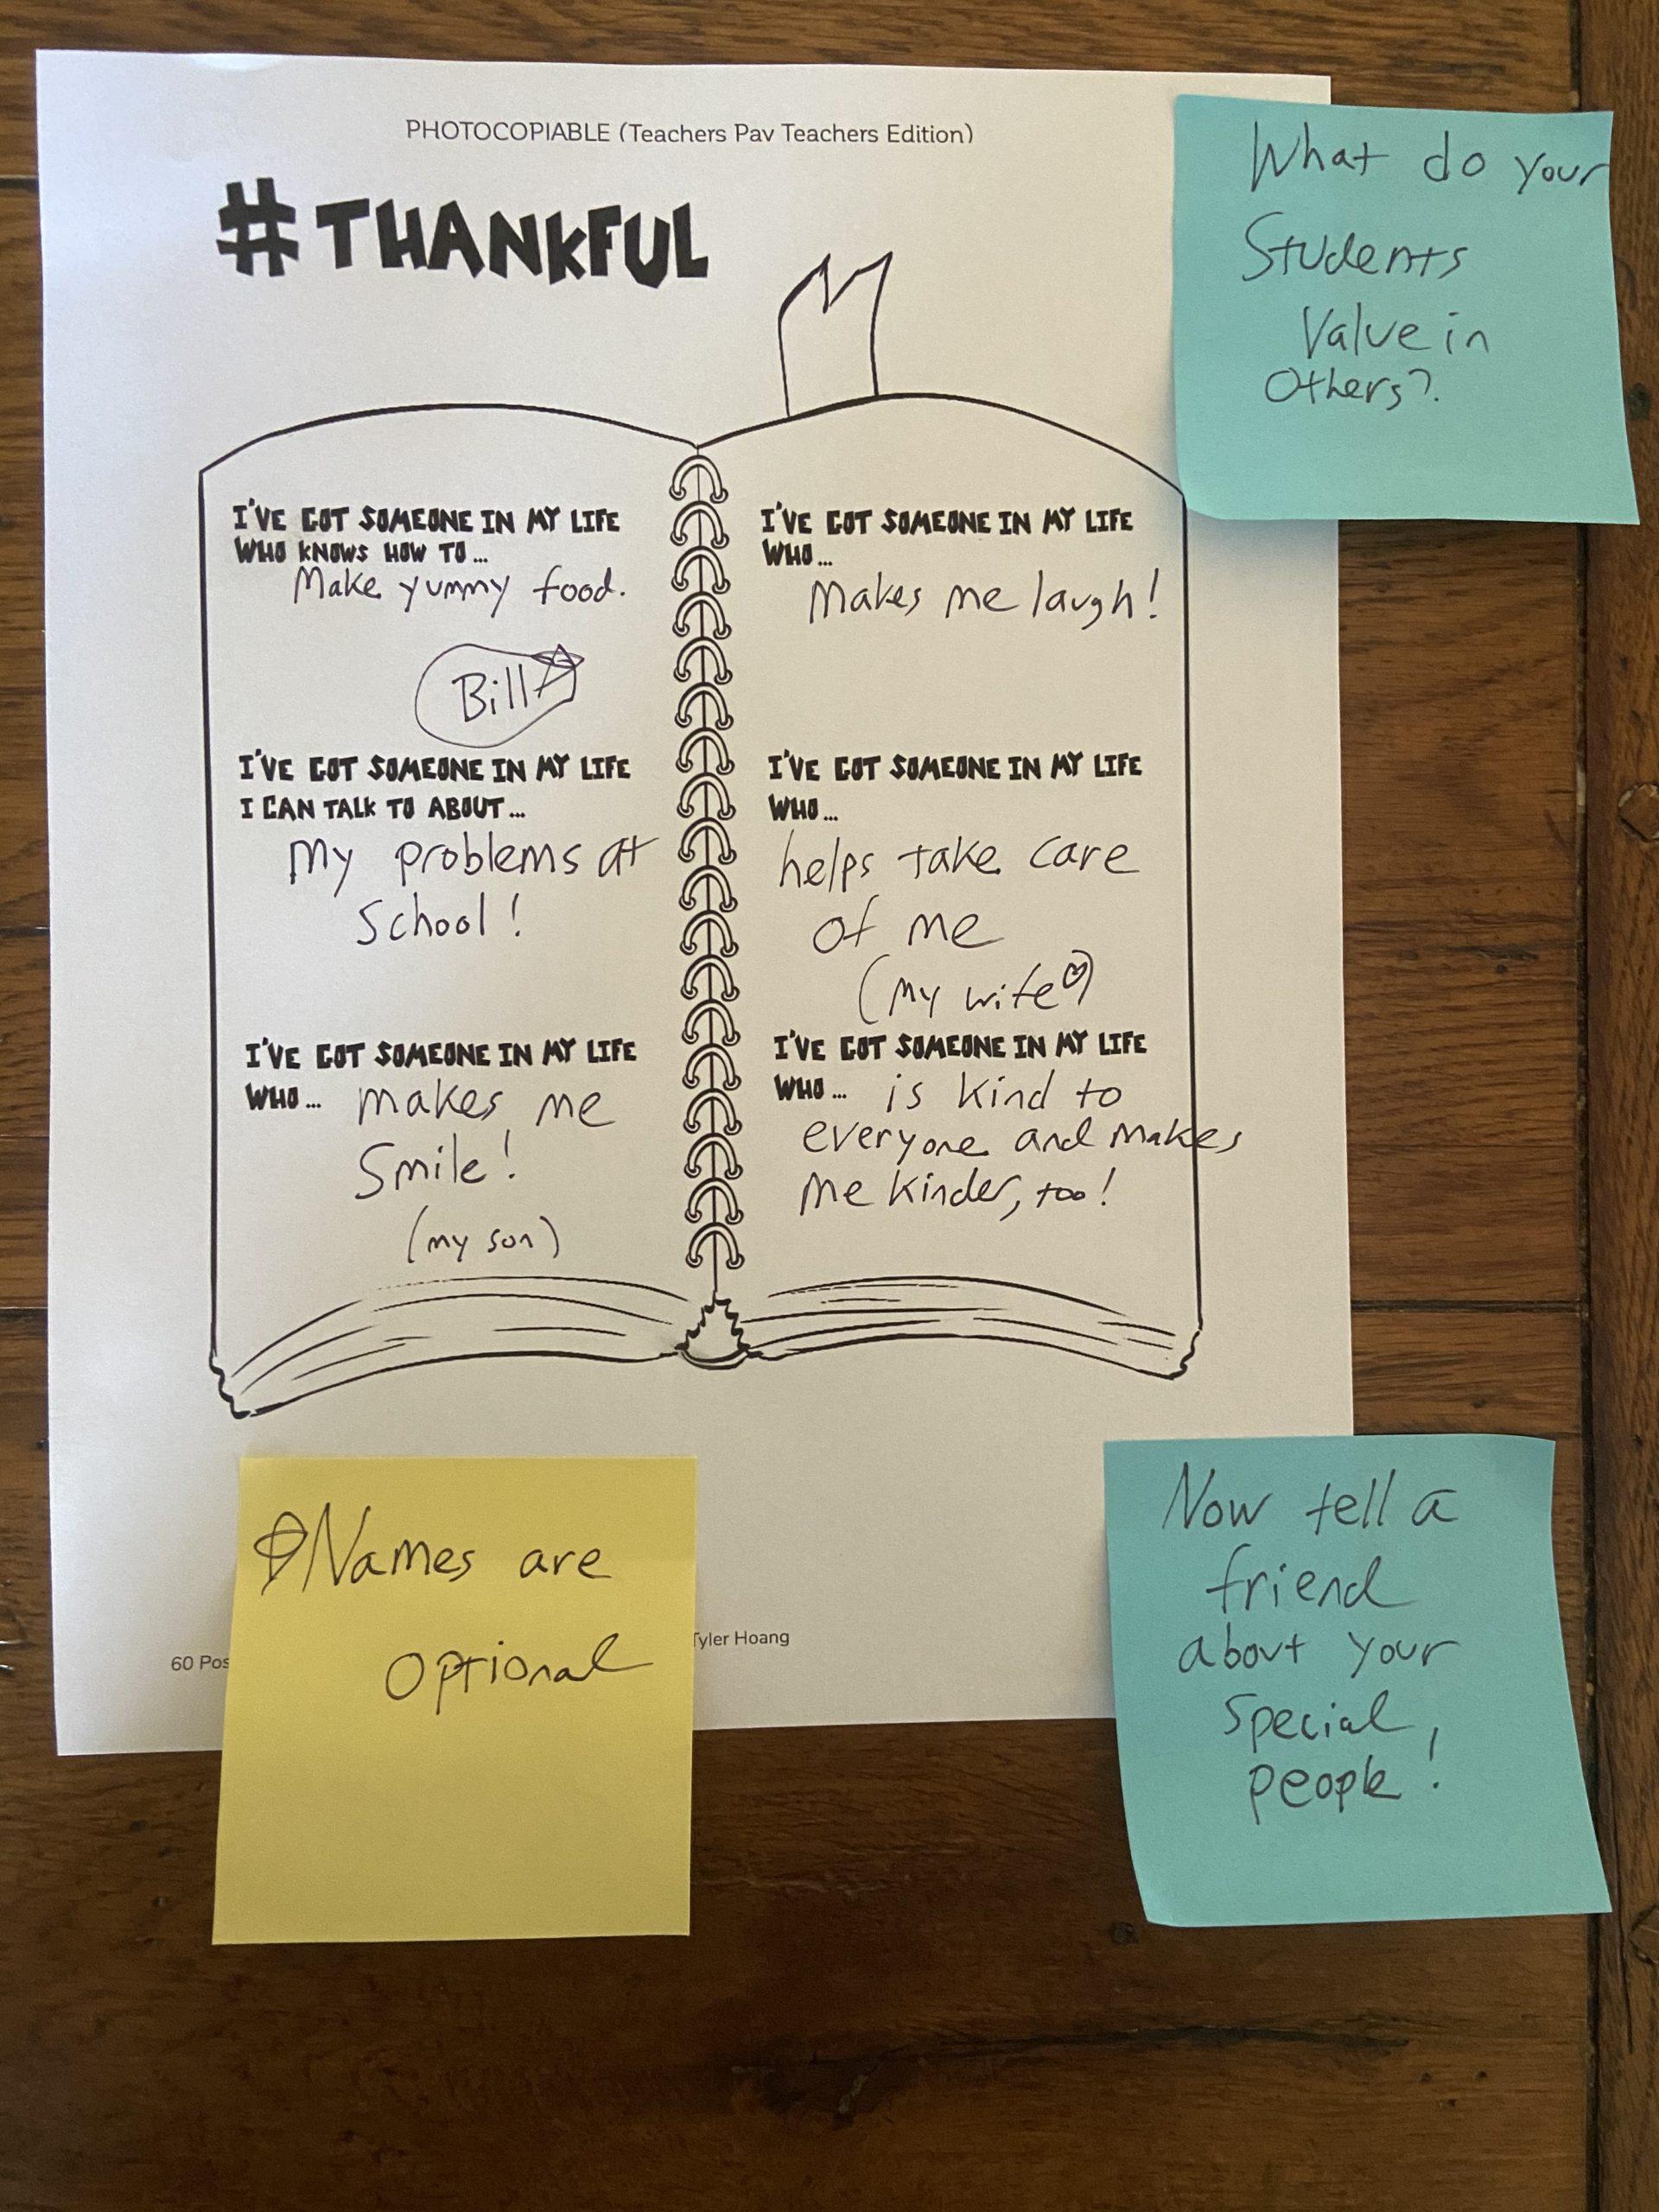 PHOTOCOPIABLE (Teachers Pav Teachers Edition)
#THANKFUL
What do your
Students
Value in
Others?
I'VE GOT SOMEONE IN MY LIFE
WHO KNOWS HOW TO...
Make yummy food.
Bill
I'VE GOT SOMEONE IN MY LIFE
I CAN TALK TO ABOUT...
My problems at
School!
I'VE GOT SOMEONE IN MY LIFE
WHO... makes me
Smile!
(my son)
I'VE GOT SOMEONE IN MY LIFE
WHO...
Makes me laugh!
I'VE GOT SOMEONE IN MY LIFE
WHO...
helps take care
of me
(my wife♡)
I'VE GOT SOMEONE IN MY LIFE
WHO... is kind to
everyone and makes
me kinder, too!
Names are
Optional
60 Pos
Tyler Hoang
Now tell a
friend
about your
special
people!